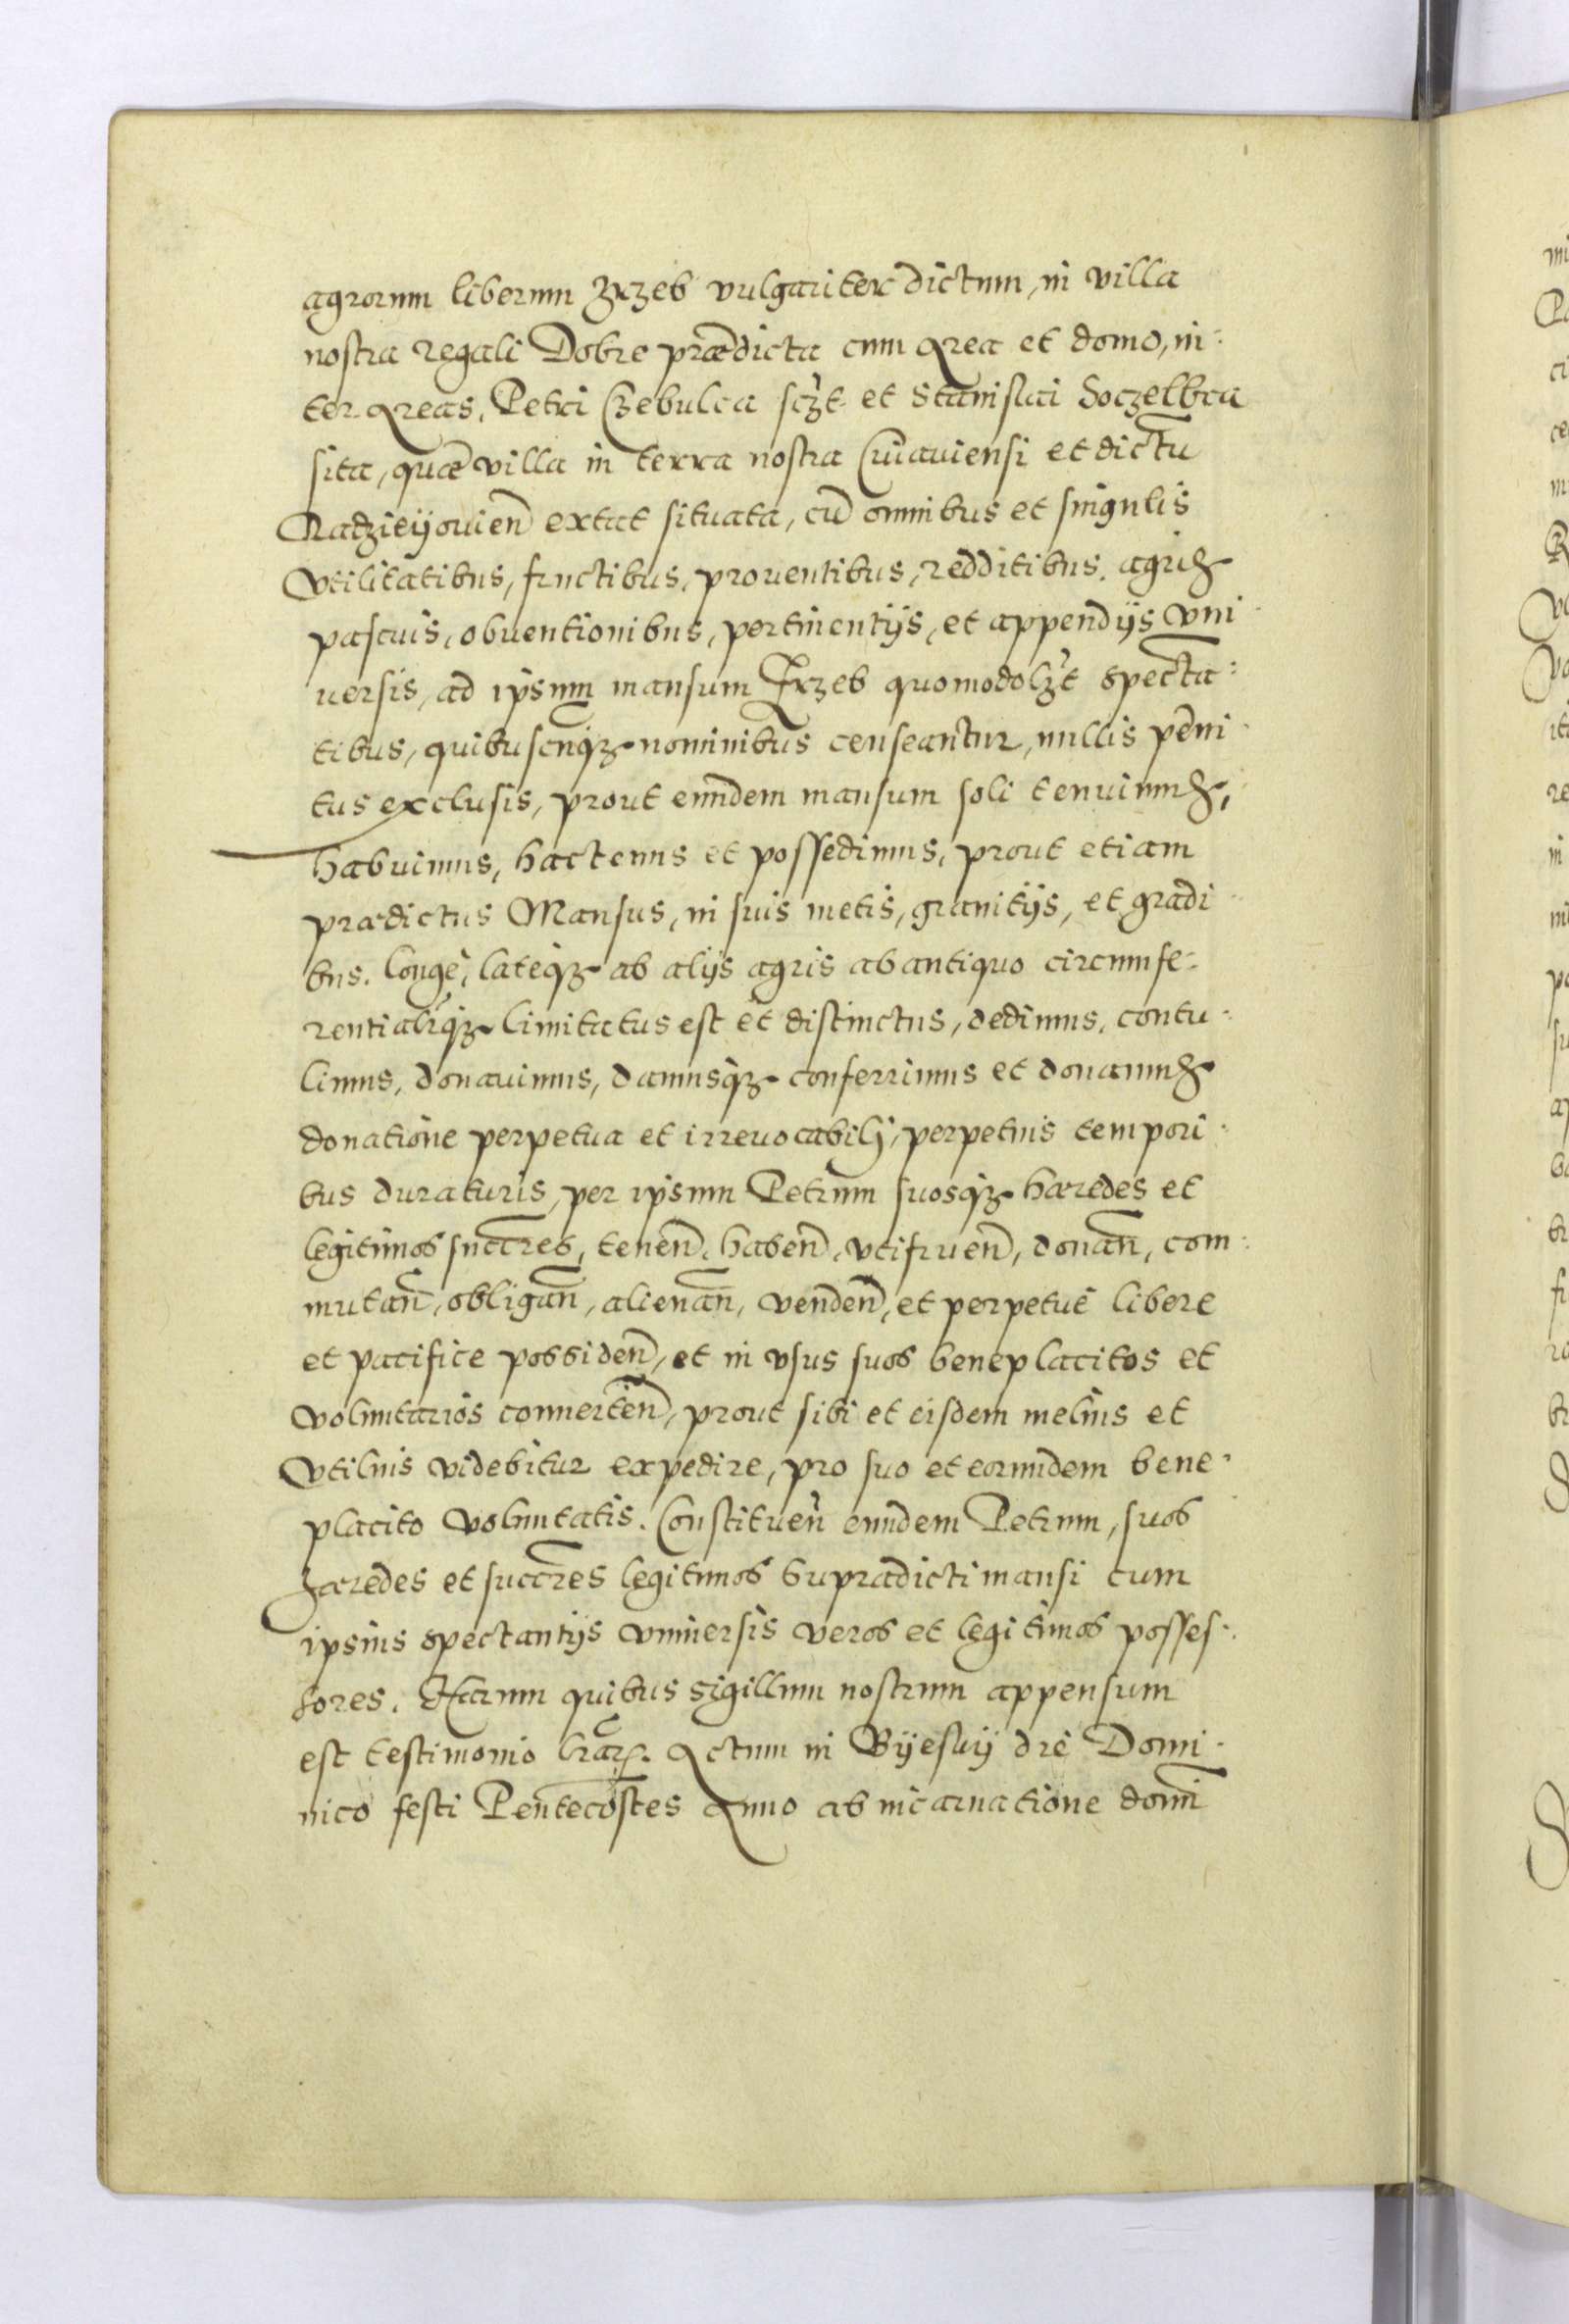 agrorum liberum Zrzeb vulgariter dictum, in villa
nostra regali Dobre prædicta cum Area et domo, in:
ter Areas, Petri Czebulca sczt et Stanislai Soczelbca
sita, quæ villa in terra nostra Cuiaviensi et dictu
Radzieyovien extat situata, cu omnibus et singulis
Vtilitatibus, fructibus, proventibus, redditibus, agris
pascuis, obventionibus, pertinentijs, et appendijs vni
versis, ad ipsum mansum Zrzeb quomodolzt specta:
tibus, quibuscuqz nominibus censeantur, nullis peni
tus exclusis, prout eundem mansum soli tenuimus,
habuimus, hactenus et possedimus, prout etiam
prædictus Mansus, in suis metis, granitijs, et gradi
bus. Longè, latèqz ab alijs agris ab antiquo circumfe:
rentialiqz limitatus est et distinctus, dedimus, contu:
limus, donavimus, damusqz conferrimus et donamus
donatione perpetua et irrevocabilj, perpetuis tempori:
bus duraturis, per ipsum Petrum suosqz hæredes et
legitimos succres, tenen, haben, vtifruen, donan, com:
mutan, obligan, alienan, venden, et perpetuè libere
et pacifice possiden, et in vsus suos beneplacitos et
voluntarios converten, prout sibi et eisdem melius et
Vtilius videbitur expedire, pro suo et eorundem bene:
placito voluntatis. Constituen eundem Petrum, suos
hæredes et succres legitimos supradicti mansi cum
ipsius spectantijs vniversis veros et legitimos posses:
sores. Harum quibus sigillum nostrum appensum
est testimonio lrar. Actum in Byesuij die Domi:
nico festi Pentecostes Anno ab incarnatione domi